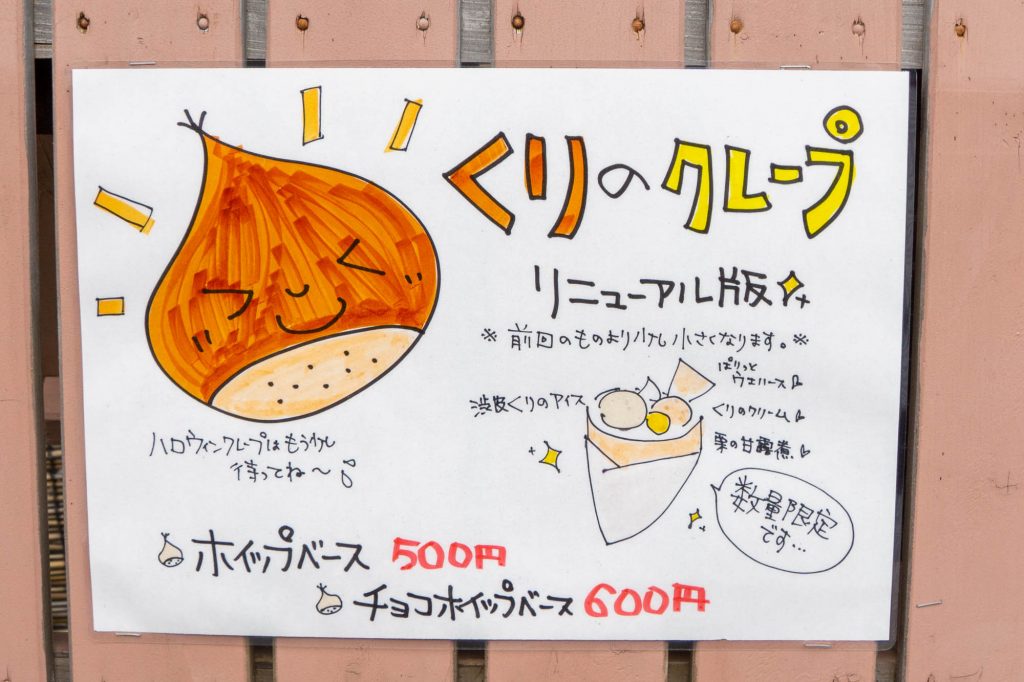 くりのクレープ
リニューアル版
※前回のものより少し小さくなります。※
ぱりっと
ウエハース
渋皮くりのアイス
くりのクリーム
栗の甘露煮
ハロウィンクレープはもう少し
待ってね〜
数量限定
です…
ホイップベース 500円
チョコホイップベース 600円